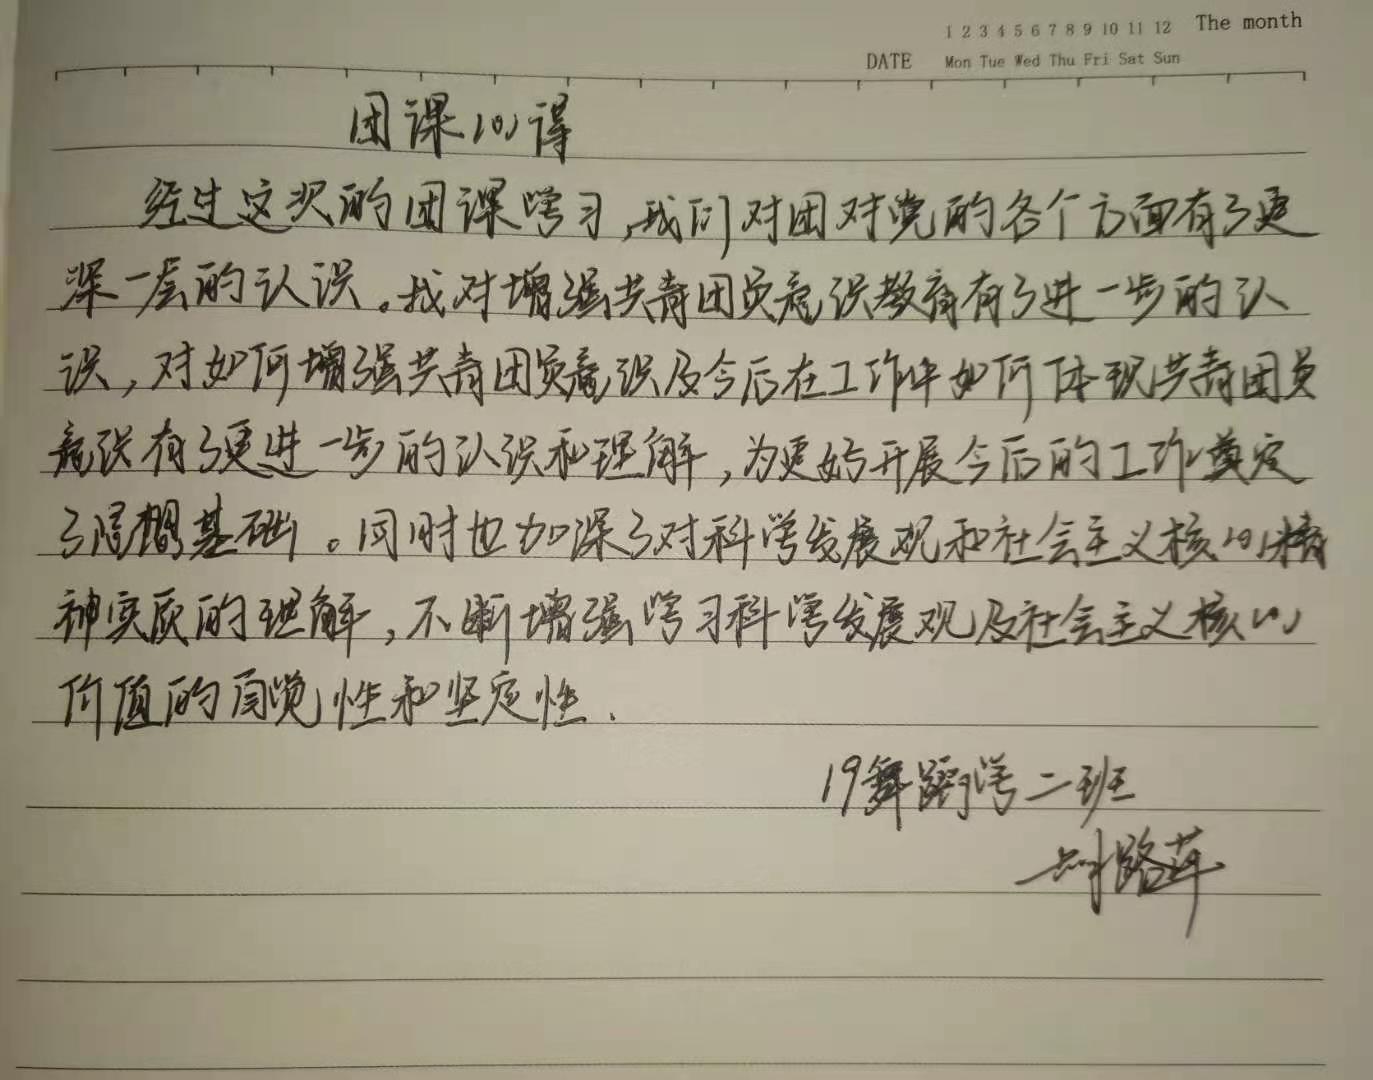 1 2 3 4 5 6 7 8 9 10 11 12 The month
DATE Mon Tue Wed Thu Fri Sat Sun
团课心得
经过这次的团课学习,我们对团对党的各个方面有了更
深一层的认识。我对增强共青团员意识教育有了进一步的认
识,对如何增强共青团员意识及今后在工作中如何体现共青团员
意识有了更进一步的认识和理解,为更好开展今后的工作奠定
了思想基础。同时也加深了对科学发展观和社会主义核心精
神实质的理解,不断增强学习科学发展观及社会主义核心
价值的自觉性和坚定性.
19舞蹈学二班
路萍